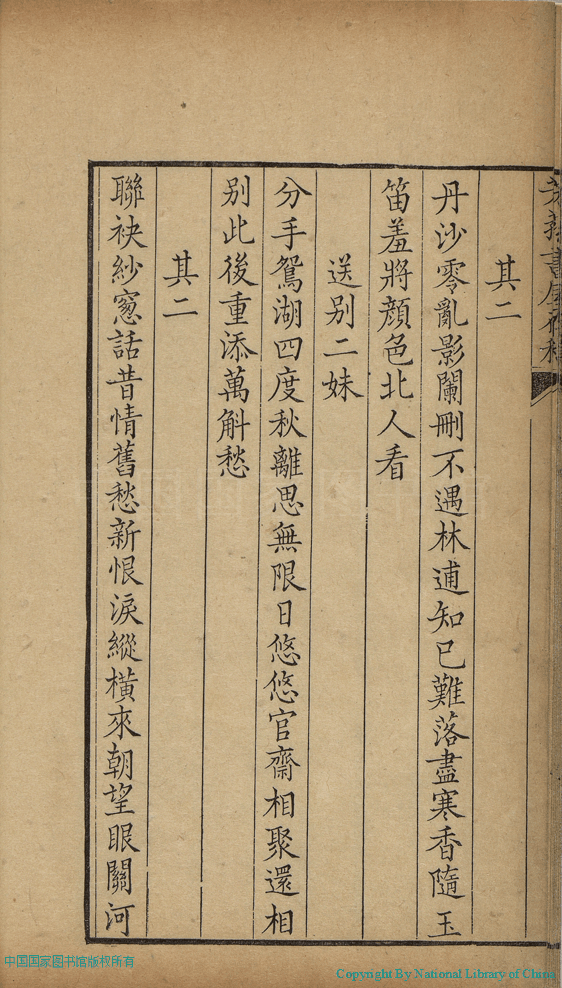 其二
丹沙零亂影闌刪不遇林逋知已難落盡寒香隨玉
笛羞將顏色北人看
送別二妹
分手鴛湖四度秋離思無限日悠悠官齋相聚還相
別此後重添萬斛愁
其二
聯袂紗窓話昔情舊愁新恨淚縱橫來朝望眼關河
中国国家图书馆版权所有
Copyright By National Library of China